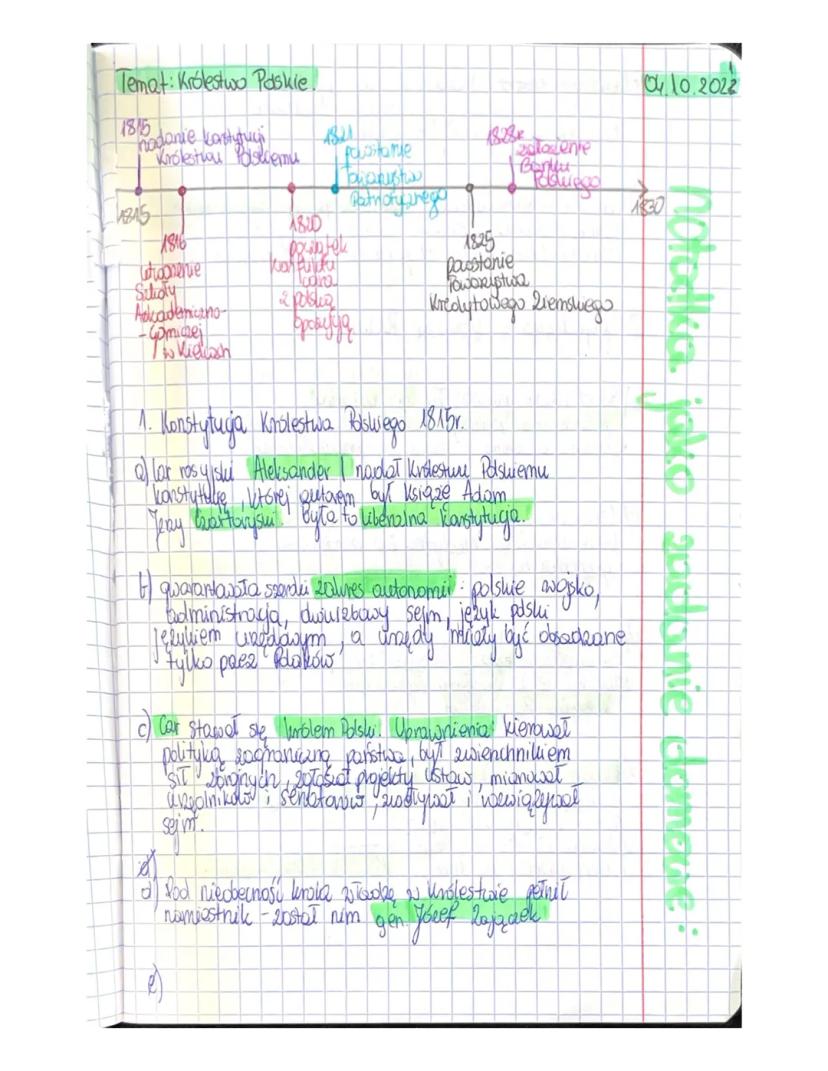 Temat: Królestwo Polskie.
04.10.2022
1815
nadanie konstytucji
Królestwu Polskiemu
1821
powstanie
Towarzystwa
Patriotycznego
1828r
założenie
Banku
Polskiego
1815
1830
1816
utworzenie
Szkoły
Akademiczno-
-Górniczej
w Kielcach
1820
początek
konfliktu
cara
z polską
opozycją
1825
powstanie
Towarzystwa
Kredytowego Ziemskiego
notatka jako zadanie domowe:
1. Konstytucja Królestwa Polskiego 1815r.
a) Car rosyjski Aleksander I nadał Królestwu Polskiemu
konstytucję, której autorem był książę Adam
Jerzy Czartoryski. Była to liberalna konstytucja.
b) gwarantowała szeroki zakres autonomii: polskie wojsko,
administracja, dwuizbowy sejm, język polski
językiem urzędowym, a urzędy miały być obsadzane
tylko przez Polaków
c) Car stawał się królem Polski. Uprawnienia: kierował
polityką zagraniczną państwa, był zwierzchnikiem
sił zbrojnych, zgłaszał projekty ustaw, mianował
urzędników i senatorów, zwoływał i rozwiązywał
sejm.
d) Pod nieobecność króla władzę w Królestwie pełnił
namiestnik - został nim gen. Józef Zajączek
e)